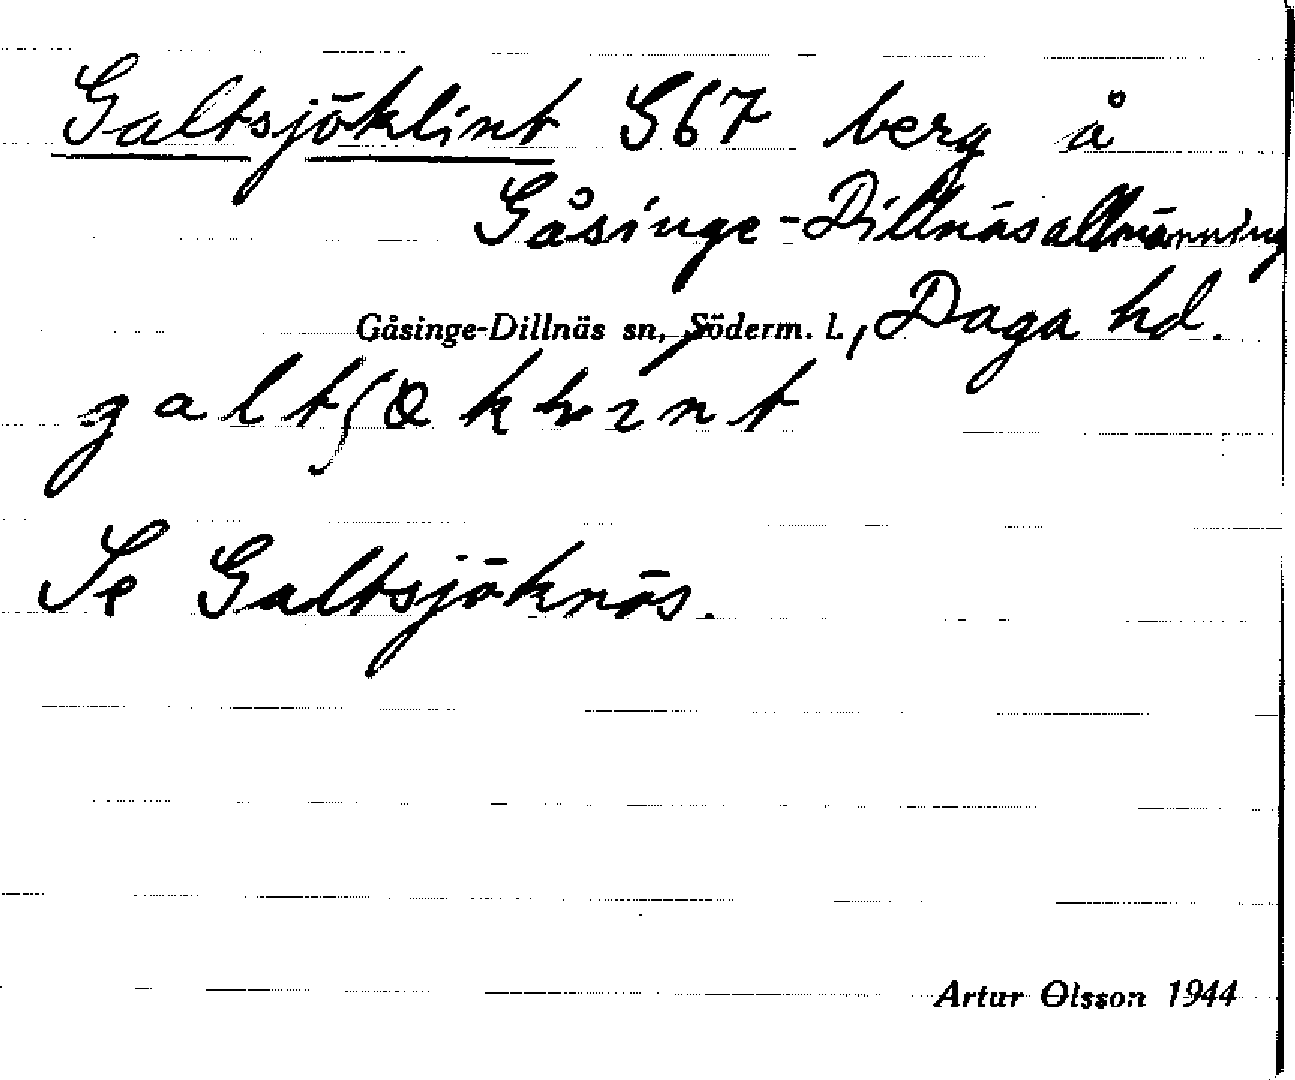 Galtsjöklint G67 berg å
Gåsinge-Dillnäs allmänning
Gåsinge-Dillnäs sn, Söderm. l., Daga hd.
Se Galtsjöknäs.
Artur Olsson 1944